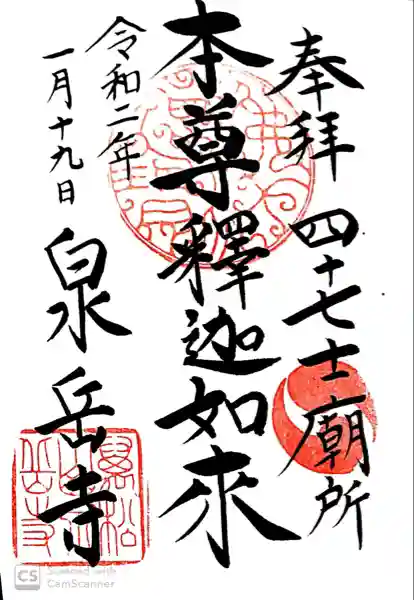 奉拝 四十七士廟所
本尊釋迦如來
令和二年
一月十九日
泉岳寺
萬松山
泉岳寺
CS Scanned with
CamScanner